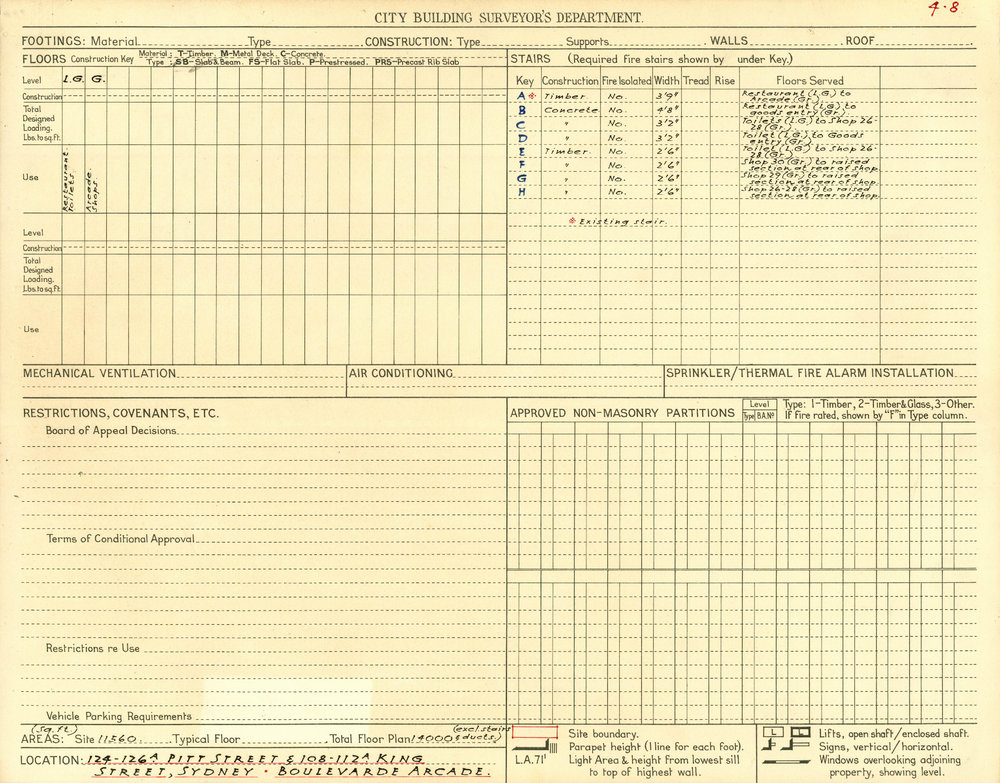 4-8
CITY BUILDING SURVEYOR'S DEPARTMENT.
FOOTINGS: Material Type CONSTRUCTION: Type Supports WALLS ROOF
FLOORS Construction Key Material: T-Timber. M-Metal Deck. C-Concrete.
Type: SB-Slab & Beam. FS-Flat Slab. P-Prestressed. PRS-Precast Rib Slab
Level L.G. G.
Construction
Total
Designed
Loading.
Lbs. to sq. ft.
Use Restaurant. Toilets. Arcade. Shops.
Level
Construction
Total
Designed
Loading.
Lbs. to sq. ft.
Use
STAIRS (Required fire stairs shown by under Key.)
Key Construction Fire Isolated Width Tread Rise Floors Served
A * Timber. No. 3'9" Restaurant (L.G.) to
Arcade (Gr.)
B Concrete. No. 4'8" Restaurant (L.G.) to
goods entry (Gr.)
C " No. 3'2" Toilets (L.G.) to Shop 26-
28 (Gr.)
D " No. 3'2" Toilet (L.G.) to Goods
entry (Gr.)
E Timber. No. 2'6" Toilet (L.G.) to Shop 26-
28 (Gr.)
F " No. 2'6" Shop 30 (Gr.) to raised
section at rear of shop.
G " No. 2'6" Shop 29 (Gr.) to raised
section at rear of shop.
H " No. 2'6" Shop 26-28 (Gr.) to raised
section at rear of shop.
* Existing stair.
MECHANICAL VENTILATION AIR CONDITIONING SPRINKLER/THERMAL FIRE ALARM INSTALLATION
RESTRICTIONS, COVENANTS, ETC.
Board of Appeal Decisions.
Terms of Conditional Approval
Restrictions re Use
Vehicle Parking Requirements
APPROVED NON-MASONRY PARTITIONS Level Type B.A.Nº Type: 1-Timber, 2-Timber & Glass, 3-Other.
If fire rated, shown by "F" in Type column.
(Sq. ft.) (excl. stairs
AREAS: Site 11560. Typical Floor Total Floor Plan 14000 & ducts.)
LOCATION: 124-126A PITT STREET & 108-112A KING
STREET, SYDNEY · BOULEVARDE ARCADE.
Site boundary.
Parapet height (1 line for each foot).
L.A.71' Light Area & height from lowest sill
to top of highest wall.
L Lifts, open shaft/enclosed shaft.
Signs, vertical/horizontal.
Windows overlooking adjoining
property, showing level.